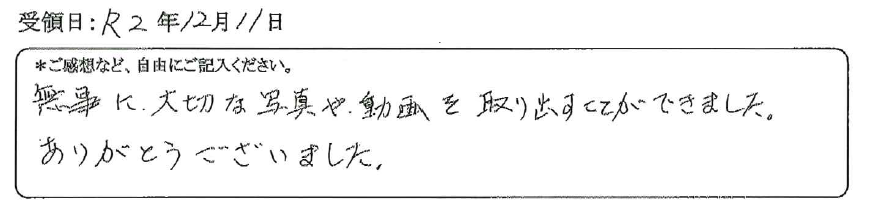 受領日：R2年12月11日
＊ご感想など、自由にご記入ください。
無事に、大切な写真や、動画を取り出すことができました。
ありがとうございました。